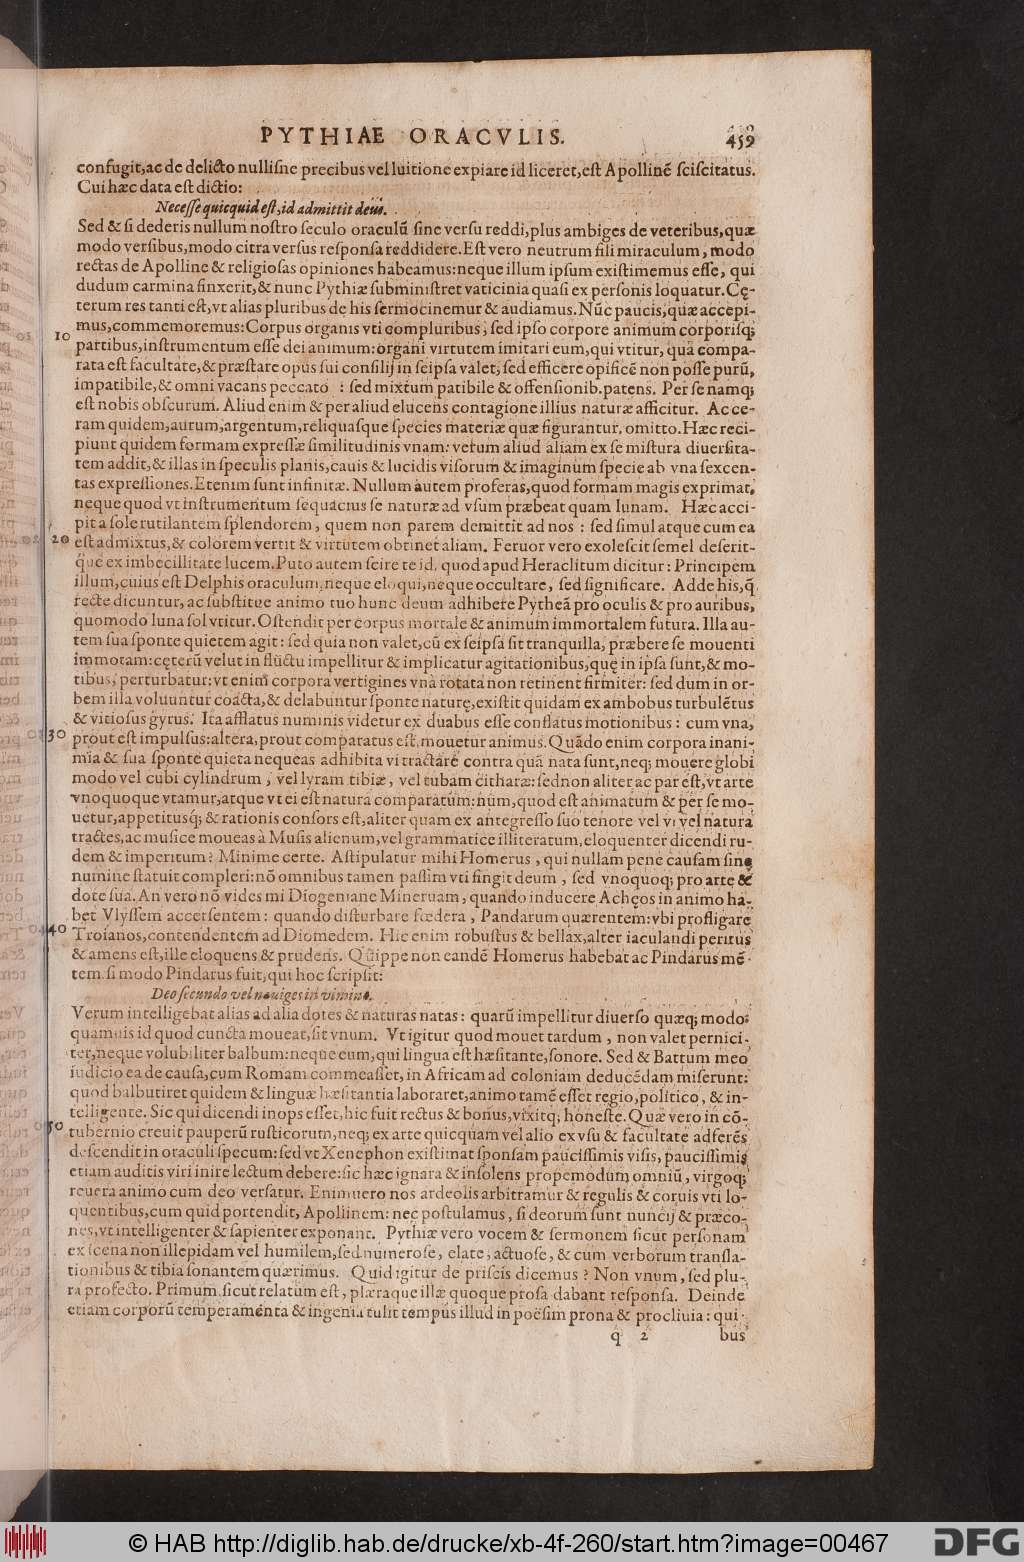 PYTHIAE ORACVLIS. 459
confugit,ac de delicto nullisne precibus vel luitione expiare id liceret,est Apollinē sciscitatus.
Cui hæc data est dictio:
Necesse quicquid est,id admittit deus.
Sed & si dederis nullum nostro seculo oraculū sine versu reddi,plus ambiges de veteribus,quæ
modo versibus,modo citra versus responsa reddidere.Est vero neutrum fili miraculum, modo
rectas de Apolline & religiosas opiniones habeamus:neque illum ipsum existimemus esse, qui
dudum carmina finxerit,& nunc Pythiæ subministret vaticinia quasi ex personis loquatur.Cę-
terum res tanti est,vt alias pluribus de his sermocinemur & audiamus.Nūc paucis,quæ accepi-
mus,commemoremus:Corpus organis vti compluribus, sed ipso corpore animum corporisq;
10 partibus,instrumentum esse dei animum:organi virtutem imitari eum,qui vtitur, quā compa-
rata est facultate,& præstare opus sui consilij in seipsa valet, sed efficere opificē non posse purū,
impatibile,& omni vacans peccato : sed mixtum patibile & offensionib.patens. Per se namq;
est nobis obscurum. Aliud enim & per aliud elucens contagione illius naturæ afficitur. Ac ce-
ram quidem,aurum,argentum,reliquasque species materiæ quæ figurantur, omitto.Hæc reci-
piunt quidem formam expressæ similitudinis vnam: verum aliud aliam ex se mistura diuersita-
tem addit,& illas in speculis planis,cauis & lucidis visorum & imaginum specie ab vna sexcen-
tas expressiones.Etenim sunt infinitæ. Nullum autem proferas,quod formam magis exprimat,
neque quod vt instrumentum sequacius se naturæ ad vsum præbeat quam lunam. Hæc acci-
pit a sole rutilantem splendorem, quem non parem demittit ad nos : sed simul atque cum ea
20 est admixtus,& colorem vertit & virtutem obtinet aliam. Feruor vero exolescit semel deserit-
que ex imbecillitate lucem.Puto autem scire te id, quod apud Heraclitum dicitur: Principem
illum,cuius est Delphis oraculum,neque eloqui,neque occultare, sed significare. Adde his,q̄
recte dicuntur, ac substitue animo tuo hunc deum adhibere Pytheā pro oculis & pro auribus,
quomodo luna sol vtitur. Ostendit per corpus mortale & animum immortalem futura. Illa au-
tem sua sponte quietem agit: sed quia non valet,cū ex seipsa sit tranquilla, præbere se mouenti
immotam:cęterū velut in fluctu impellitur & implicatur agitationibus,quę in ipsa sunt,& mo-
tibus, perturbatur: vt enim corpora vertigines vna rotata non retinent firmiter: sed dum in or-
bem illa voluuntur coacta,& delabuntur sponte naturę,existit quidam ex ambobus turbulētus
& vitiosus gyrus. Ita afflatus numinis videtur ex duabus esse conflatus motionibus : cum vna,
30 prout est impulsus:altera,prout comparatus est,mouetur animus.Quādo enim corpora inani-
mia & sua sponte quieta nequeas adhibita vi tractare contra quā nata sunt,neq; mouere globi
modo vel cubi cylindrum, vel lyram tibiæ, vel tubam citharæ: sed non aliter ac par est,vt arte
vnoquoque vtamur,atque vt ei est natura comparatum: num,quod est animatum & per se mo-
uetur,appetitusq; & rationis consors est,aliter quam ex antegresso suo tenore vel vi vel natura
tractes,ac musice moueas à Musis alienum,vel grammatice illiteratum,eloquenter dicendi ru-
dem & imperitum? Minime certe. Astipulatur mihi Homerus, qui nullam pene causam sine
numine statuit compleri:nō omnibus tamen passim vti fingit deum, sed vnoquoq; pro arte &
dote sua.An vero nō vides mi Diogeniane Mineruam, quando inducere Achęos in animo ha-
bet Vlyssem accersentem: quando disturbare fœdera, Pandarum quærentem:vbi profligare
40 Troianos,contendentem ad Diomedem. Hic enim robustus & bellax,alter iaculandi peritus
& amens est,ille eloquens & prudens. Quippe non eandē Homerus habebat ac Pindarus mē-
tem si modo Pindarus fuit,qui hoc scripsit:
Deo secundo vel nauiges in vimine.
Verum intelligebat alias ad alia dotes & naturas natas: quarū impellitur diuerso quæq; modo:
quamuis id quod cuncta moueat,sit vnum. Vt igitur quod mouet tardum, non valet pernici-
ter,neque volubiliter balbum:neque eum,qui lingua est hæsitante,sonore. Sed & Battum meo
iudicio ea de causa,cum Romam commeasset, in Africam ad coloniam deducēdam miserunt:
quod balbutiret quidem & linguæ hæsitantia laboraret,animo tamē esset regio,politico, & in-
telligente. Sic qui dicendi inops esset,hic fuit rectus & bonus,vixitq; honeste. Quæ vero in cō-
50 tubernio creuit pauperū rusticorum,neq; ex arte quicquam vel alio ex vsu & facultate adferēs
descendit in oraculi specum:sed vt Xenephon existimat sponsam paucissimis visis, paucissimis
etiam auditis viri inire lectum debere:sic hæc ignara & insolens propemodum omniū, virgoq;
reuera animo cum deo versatur. Enimuero nos ardeolis arbitramur & regulis & coruis vti lo-
quentibus,cum quid portendit, Apollinem: nec postulamus, si deorum sunt nuncij & præco-
nes,vt intelligenter & sapienter exponant. Pythiæ vero vocem & sermonem sicut personam
ex scena non illepidam vel humilem,sed numerose, elate, actuose, & cum verborum transla-
tionibus & tibia sonantem quærimus. Quid igitur de priscis dicemus ? Non vnum, sed plu-
ra profecto. Primum sicut relatum est, plæraque illæ quoque prosa dabant responsa. Deinde
etiam corporū temperamenta & ingenia tulit tempus illud in poësim prona & procliuia : qui-
q 2 bus
© HAB http://diglib.hab.de/drucke/xb-4f-260/start.htm?image=00467
DFG